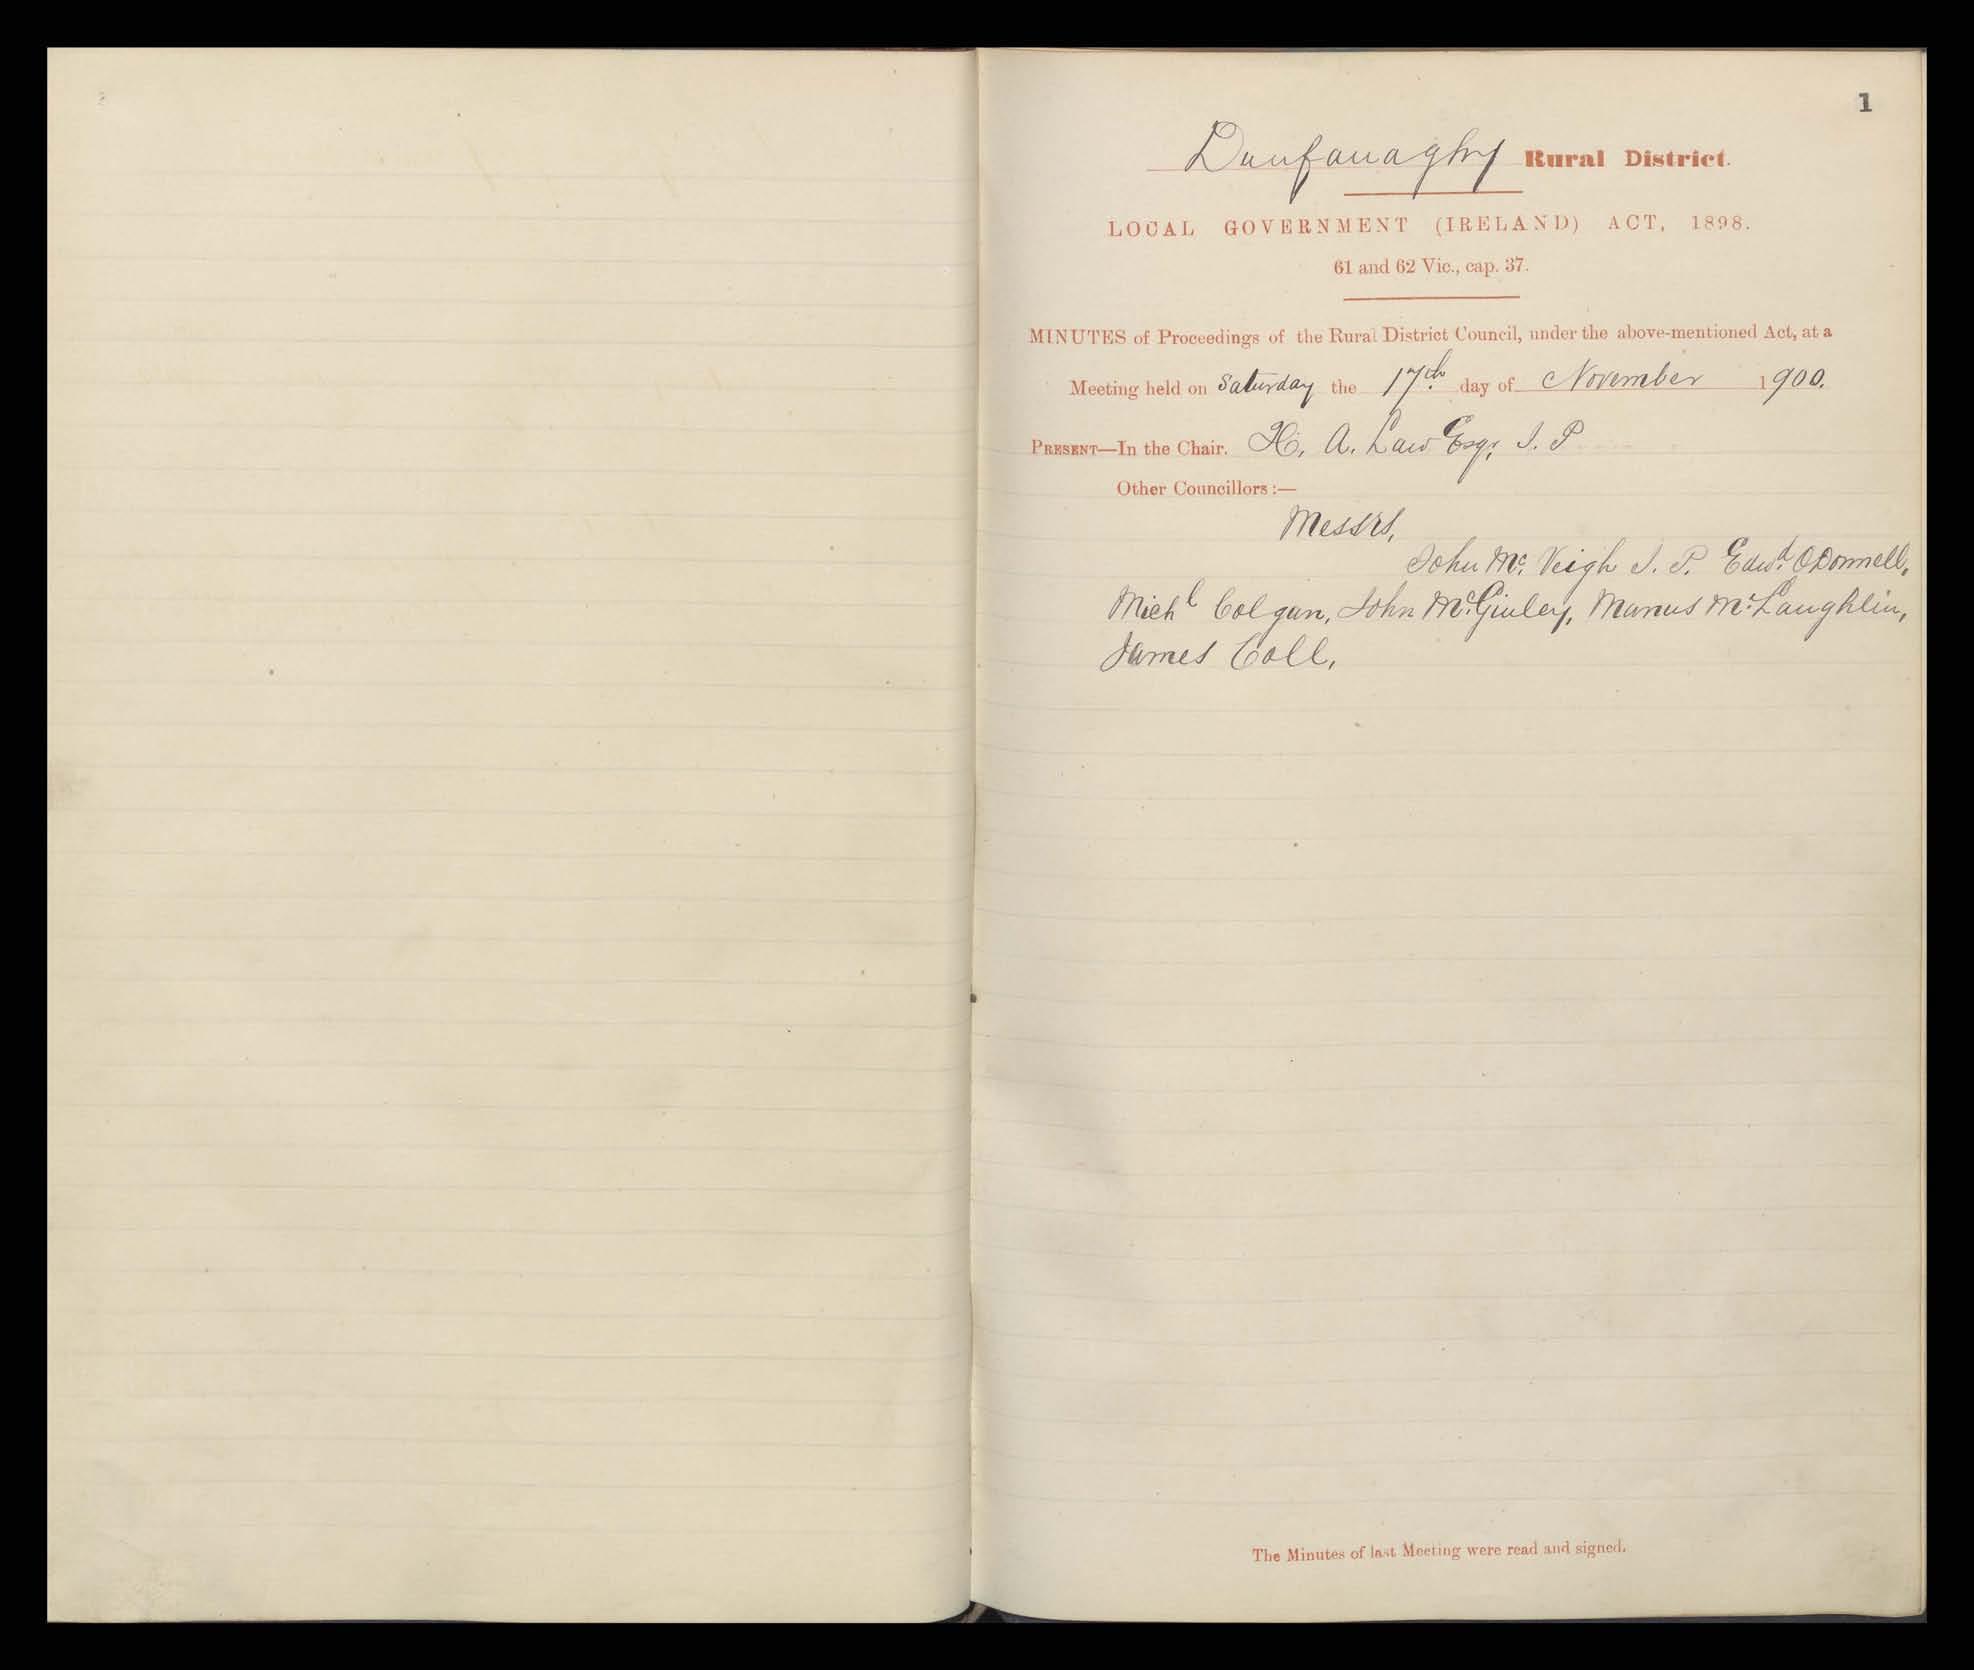 1
Dunfanaghy Rural District.
LOCAL GOVERNMENT (IRELAND) ACT, 1898.
61 and 62 Vic., cap. 37.
MINUTES of Proceedings of the Rural District Council, under the above-mentioned Act, at a
Meeting held on Saturday the 17th day of November 1900.
PRESENT—In the Chair. H. A. Law Esqr. J. P
Other Councillors:—
Messrs,
John Mc. Veigh J. P. Edwd. O'Donnell,
Michl Colgan, John McGinley, Manus McLaughlin,
James Coll,
The Minutes of last Meeting were read and signed.